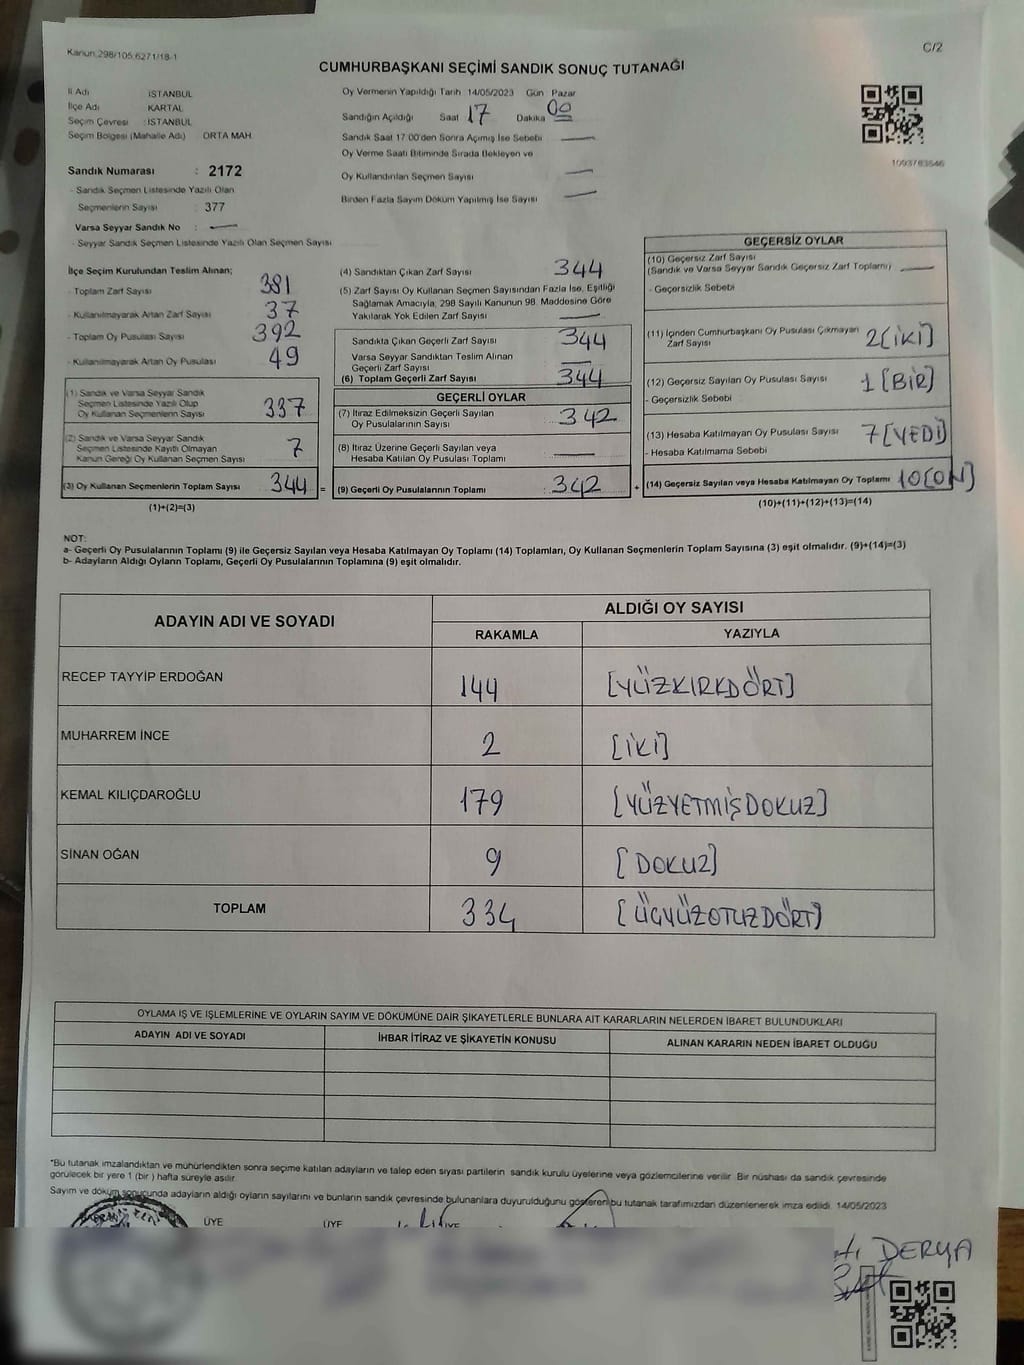 Kanun.298/105.6271/18-1
C/2
CUMHURBAŞKANI SEÇİMİ SANDIK SONUÇ TUTANAĞI
İl Adı İSTANBUL
İlçe Adı KARTAL
Seçim Çevresi : İSTANBUL
Seçim Bölgesi (Mahalle Adı) ORTA MAH.
Sandık Numarası : 2172
- Sandık Seçmen Listesinde Yazılı Olan
Seçmenlerin Sayısı : 377
Varsa Seyyar Sandık No : —
- Seyyar Sandık Seçmen Listesinde Yazılı Olan Seçmen Sayısı
Oy Vermenin Yapıldığı Tarih 14/05/2023 Gün Pazar
Sandığın Açıldığı Saat 17 Dakika 00
Sandık Saat 17.00'den Sonra Açımış İse Sebebi —
Oy Verme Saati Bitiminde Sırada Bekleyen ve
Oy Kullandırılan Seçmen Sayısı —
Birden Fazla Sayım Döküm Yapılmış İse Sayısı —
1093783546
İlçe Seçim Kurulundan Teslim Alınan;
- Toplam Zarf Sayısı 381
- Kullanılmayarak Artan Zarf Sayısı 37
- Toplam Oy Pusulası Sayısı 392
- Kullanılmayarak Artan Oy Pusulası 49
(1) Sandık ve Varsa Seyyar Sandık
Seçmen Listesinde Yazılı Olup
Oy Kullanan Seçmenlerin Sayısı 337
(2) Sandık ve Varsa Seyyar Sandık
Seçmen Listesinde Kayıtlı Olmayan
Kanun Gereği Oy Kullanan Seçmen Sayısı 7
(3) Oy Kullanan Seçmenlerin Toplam Sayısı 344 =
(1)+(2)=(3)
(4) Sandıktan Çıkan Zarf Sayısı 344
(5) Zarf Sayısı Oy Kullanan Seçmen Sayısından Fazla İse, Eşitliği
Sağlamak Amacıyla, 298 Sayılı Kanunun 98. Maddesine Göre
Yakılarak Yok Edilen Zarf Sayısı —
Sandıkta Çıkan Geçerli Zarf Sayısı 344
Varsa Seyyar Sandıktan Teslim Alınan
Geçerli Zarf Sayısı —
(6) Toplam Geçerli Zarf Sayısı 344
GEÇERLİ OYLAR
(7) İtiraz Edilmeksizin Geçerli Sayılan
Oy Pusulalarının Sayısı 342
(8) İtiraz Üzerine Geçerli Sayılan veya
Hesaba Katılan Oy Pusulası Toplamı —
(9) Geçerli Oy Pusulalarının Toplamı : 342 +
GEÇERSİZ OYLAR
(10) Geçersiz Zarf Sayısı
(Sandık ve Varsa Seyyar Sandık Geçersiz Zarf Toplamı) —
- Geçersizlik Sebebi
(11) İçinden Cumhurbaşkanı Oy Pusulası Çıkmayan
Zarf Sayısı 2[İKİ]
(12) Geçersiz Sayılan Oy Pusulası Sayısı 1[BİR]
- Geçersizlik Sebebi
(13) Hesaba Katılmayan Oy Pusulası Sayısı 7[YEDİ]
- Hesaba Katılmama Sebebi
(14) Geçersiz Sayılan veya Hesaba Katılmayan Oy Toplamı 10[ON]
(10)+(11)+(12)+(13)=(14)
NOT:
a- Geçerli Oy Pusulalarının Toplamı (9) ile Geçersiz Sayılan veya Hesaba Katılmayan Oy Toplamı (14) Toplamları, Oy Kullanan Seçmenlerin Toplam Sayısına (3) eşit olmalıdır. (9)+(14)=(3)
b- Adayların Aldığı Oyların Toplamı, Geçerli Oy Pusulalarının Toplamına (9) eşit olmalıdır.
ADAYIN ADI VE SOYADI
ALDIĞI OY SAYISI
RAKAMLA YAZIYLA
RECEP TAYYİP ERDOĞAN 144 [YÜZKIRKDÖRT]
MUHARREM İNCE 2 [İKİ]
KEMAL KILIÇDAROĞLU 179 [YÜZYETMİŞDOKUZ]
SİNAN OĞAN 9 [DOKUZ]
TOPLAM 334 [ÜÇYÜZOTUZDÖRT]
OYLAMA İŞ VE İŞLEMLERİNE VE OYLARIN SAYIM VE DÖKÜMÜNE DAİR ŞİKAYETLERLE BUNLARA AİT KARARLARIN NELERDEN İBARET BULUNDUKLARI
ADAYIN ADI VE SOYADI İHBAR İTİRAZ VE ŞİKAYETİN KONUSU ALINAN KARARIN NEDEN İBARET OLDUĞU
*Bu tutanak imzalandıktan ve mühürlendikten sonra seçime katılan adayların ve talep eden siyasi partilerin sandık kurulu üyelerine veya gözlemcilerine verilir. Bir nüshası da sandık çevresinde
görülecek bir yere 1 (bir) hafta süreyle asılır.
Sayım ve döküm sonucunda adayların aldığı oyların sayılarını ve bunların sandık çevresinde bulunanlara duyurulduğunu gösteren bu tutanak tarafımızdan düzenlenerek imza edildi. 14/05/2023
ÜYE ÜYE ÜYE
DERYA